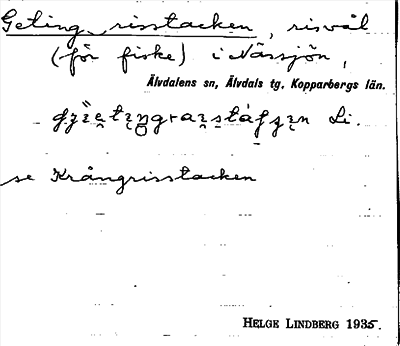 Getingrisstacken, risvål
(för fiske) i Nässjön,
Älvdalens sn, Älvdals tg, Kopparbergs län.
Li.
se Krångrisstacken
HELGE LINDBERG 1935.